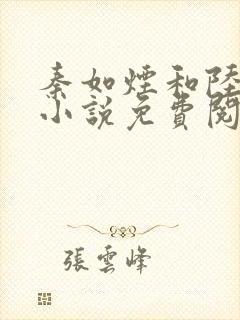 秦如煙和陸
小說免費閱
張雲峰